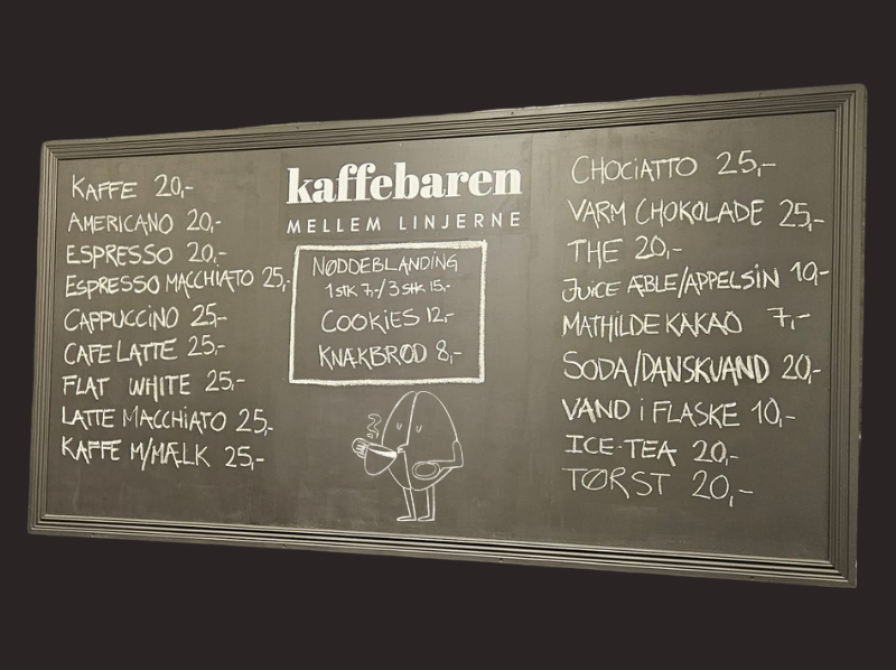 KAFFE 20,-
AMERICANO 20,-
ESPRESSO 20,-
ESPRESSO MACCHIATO 25,-
CAPPUCCINO 25,-
CAFE LATTE 25,-
FLAT WHITE 25,-
LATTE MACCHIATO 25,-
KAFFE M/MÆLK 25,-
kaffebaren
MELLEM LINJERNE
NØDDEBLANDING
1 stk 7,-/3 stk 15,-
COOKIES 12,-
KNÆKBRØD 8,-
CHOCIATTO 25,-
VARM CHOKOLADE 25,-
THE 20,-
JUICE ÆBLE/APPELSIN 10,-
MATHILDE KAKAO 7,-
SODA/DANSKVAND 20,-
VAND i FLASKE 10,-
ICE-TEA 20,-
TØRST 20,-